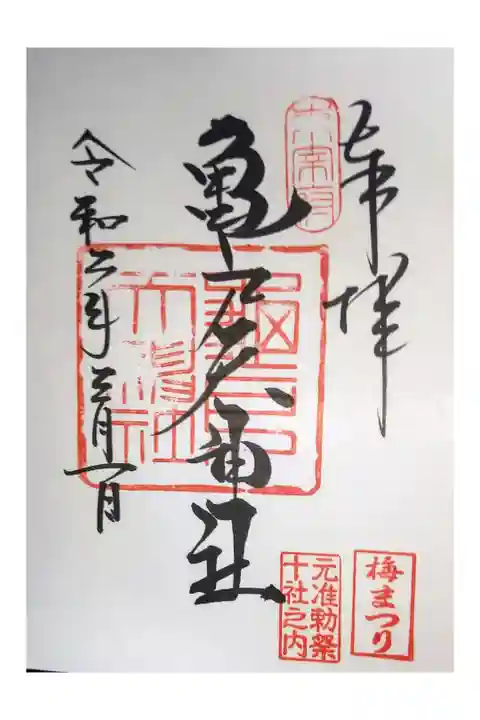 奉拝
太宰府
亀戸天神社
令和二年三月一日
梅まつり
元准勅祭
十社之内